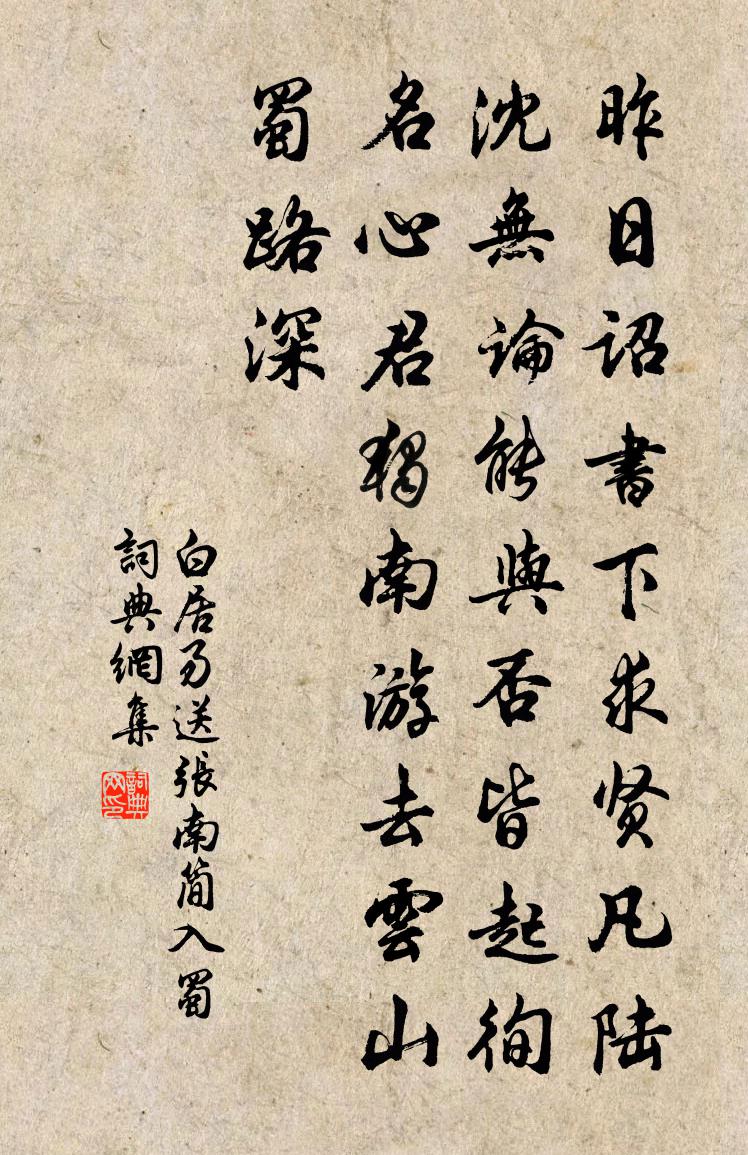 昨日詔書下求贤凡陆
沈無論能與否皆起徇
名心君獨南游去雲山
蜀路深
白居易送張南简入蜀
詞典網集
詞典
网印